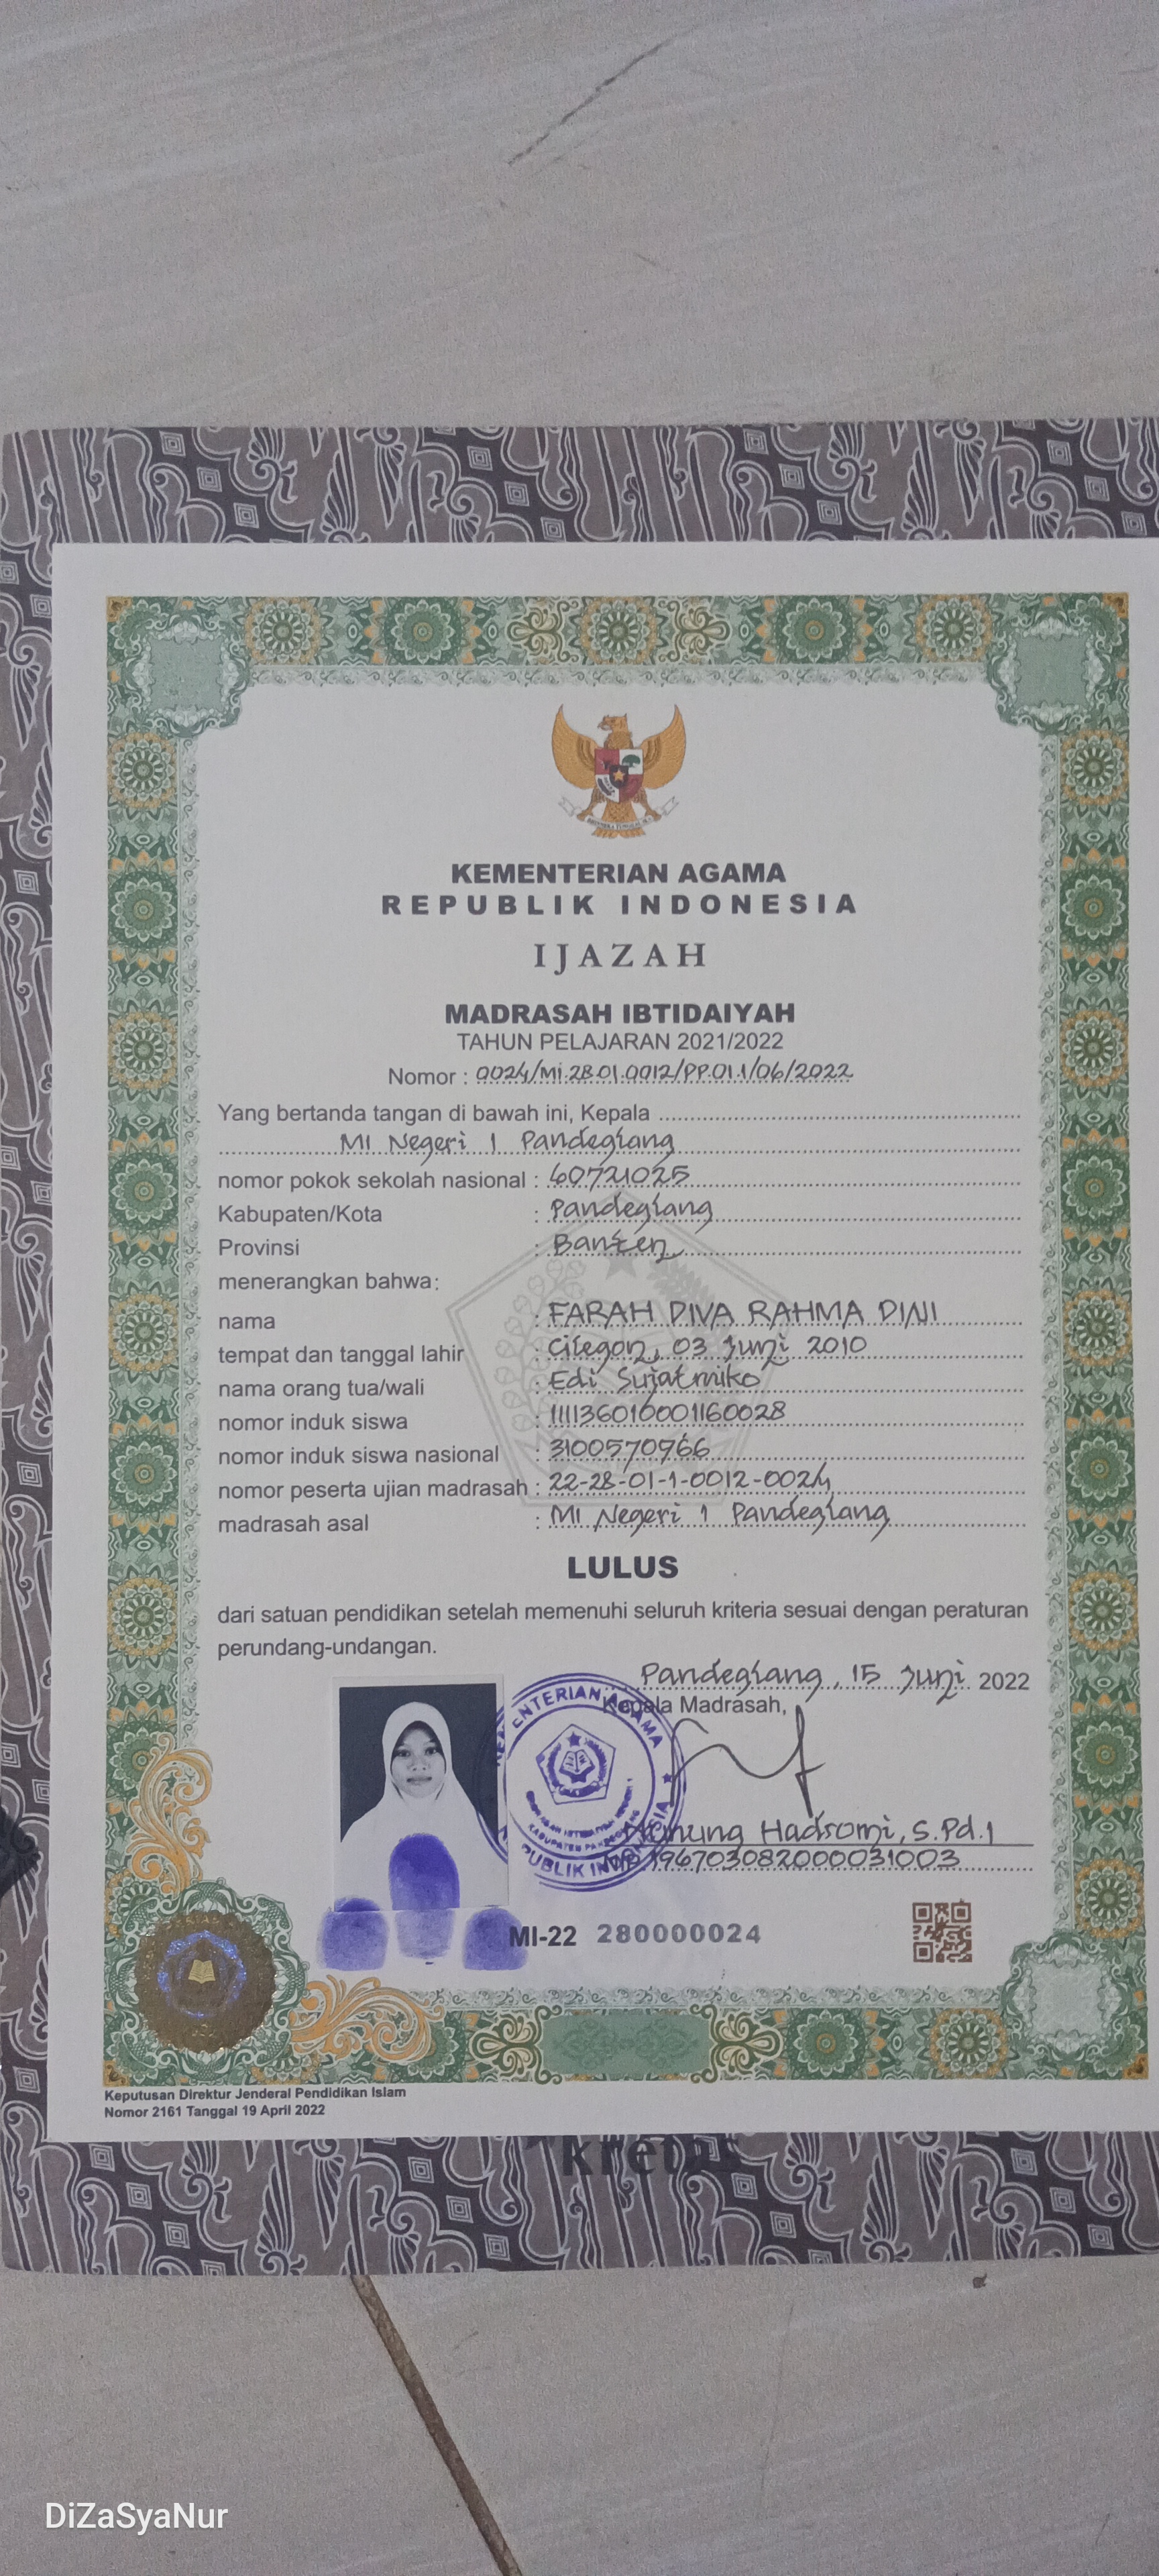 KEMENTERIAN AGAMA
REPUBLIK INDONESIA
IJAZAH
MADRASAH IBTIDAIYAH
TAHUN PELAJARAN 2021/2022
Nomor : 0024/MI.28.01.0012/PP.01.1/06/2022
Yang bertanda tangan di bawah ini, Kepala
MI Negeri 1 Pandeglang
nomor pokok sekolah nasional : 60721025
Kabupaten/Kota : Pandeglang
Provinsi : Banten
menerangkan bahwa:
nama : FARAH DIVA RAHMA DINI
tempat dan tanggal lahir : Cilegon, 03 Juni 2010
nama orang tua/wali : Edi Sujatmiko
nomor induk siswa : 111136010001160028
nomor induk siswa nasional : 3100570966
nomor peserta ujian madrasah : 22-28-01-1-0012-0024
madrasah asal : MI Negeri 1 Pandeglang
LULUS
dari satuan pendidikan setelah memenuhi seluruh kriteria sesuai dengan peraturan
perundang-undangan.
Pandeglang, 15 Juni 2022
Kepala Madrasah,
KEMENTERIAN AGAMA
REPUBLIK INDONESIA
Hadromi, S.Pd.I
NIP. 196703082000031003
MI-22 280000024
Keputusan Direktur Jenderal Pendidikan Islam
Nomor 2161 Tanggal 19 April 2022
DiZaSyaNur